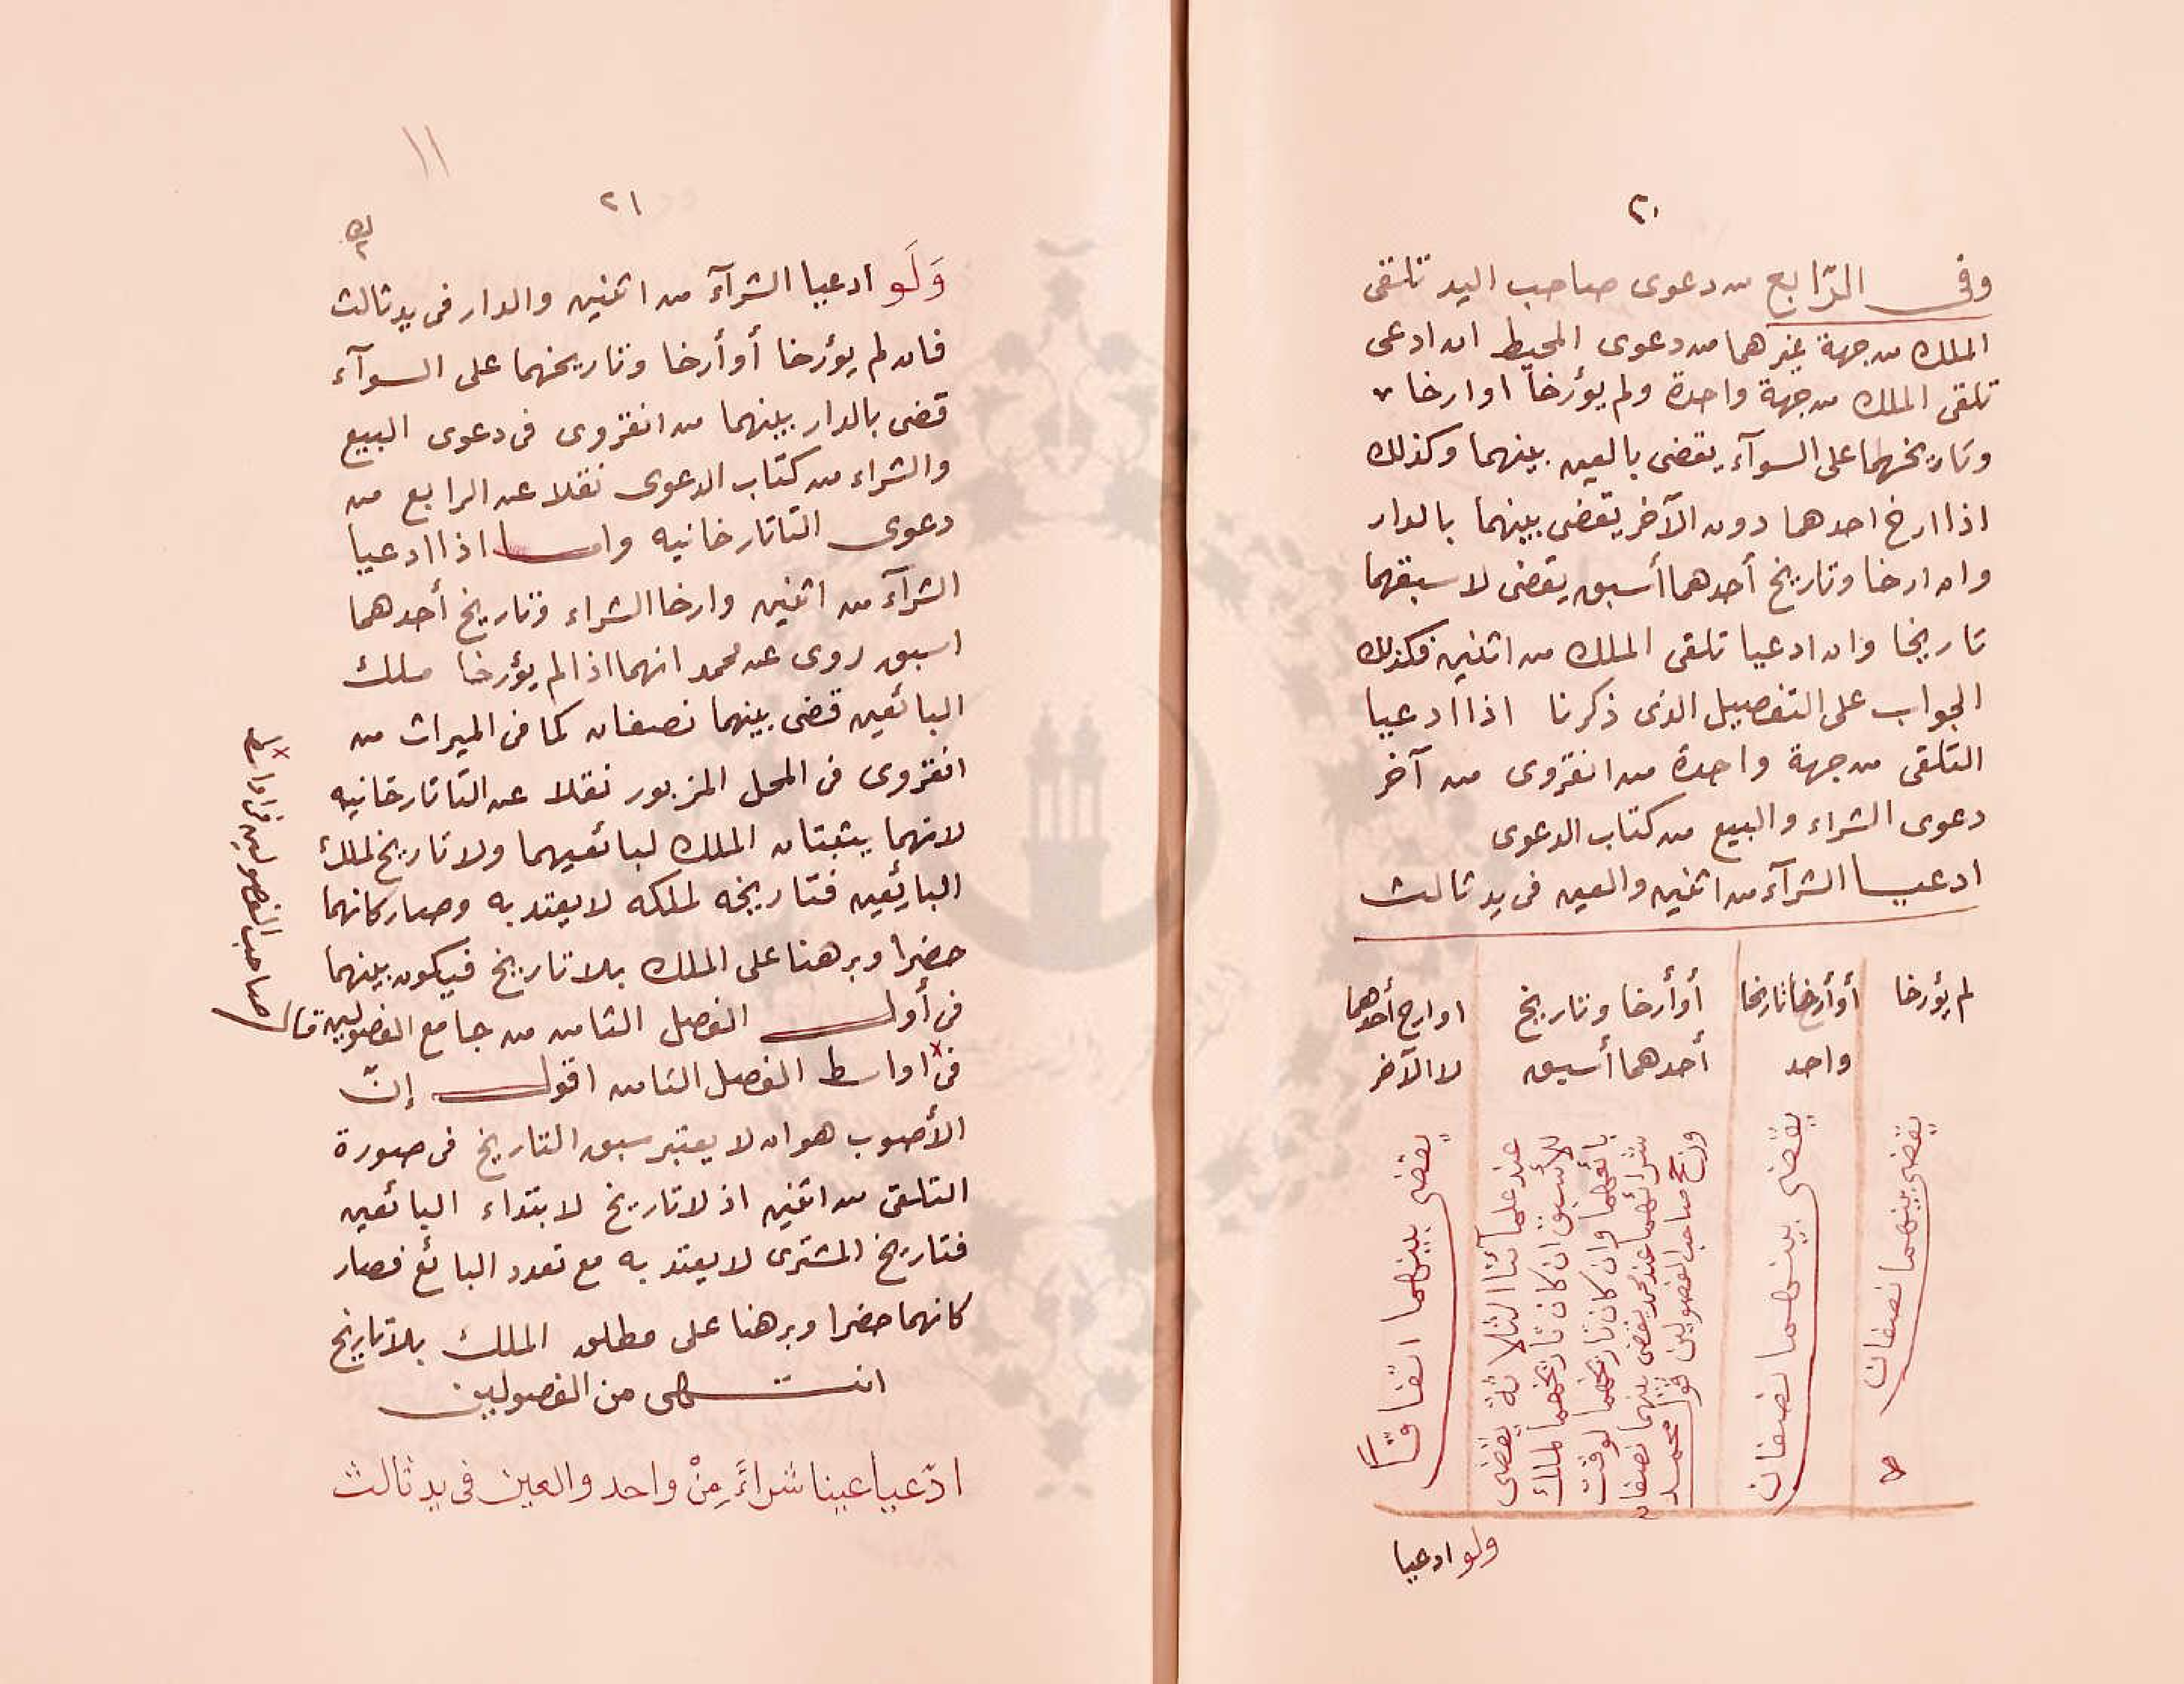 ٢٠
وفى الرّابع من دعوى صاحب اليد تلقى
الملك من جهة غيرهما من دعوى المحيط ان ادعى
تلقى الملك من جهة واحدة ولم يؤرخا او ارخا
وتاريخهما على السوآء يقضى بالعين بينهما وكذلك
اذا ارخ احدهما دون الآخر يقضى بينهما بالدار
وان ارخا وتاريخ أحدهما أسبق يقضى لاسبقهما
تاريخا وان ادعيا تلقى الملك من اثنين فكذلك
الجواب على التفصيل الذى ذكرنا اذا ادعيا
التلقى من جهة واحدة من انقروى من آخر
دعوى الشراء والبيع من كتاب الدعوى
ادعيا الشرآء من اثنين والعين فى يد ثالث
لم يؤرخا
يقضى بينهما نصفان
أو أرخا تاريخا
واحد
يقضى بينهما نصفان
أو أرخا وتاريخ
أحدهما أسبق
عند علمائنا الثلاثة يقضى
للأسبق ان كان تاريخهما لملك
بائعهما وان كان تاريخهما لوقت
شرائهما عند محمد يقضى بينهما نصفان
ورجح صاحب الفصولين قول محمد
او ارخ أحدهما
لا الآخر
يقضى بينهما اتفاقاً
ولو ادعيا
١١
٢١
وَلَو ادعيا الشرآء من اثنين والدار فى يد ثالث
فان لم يؤرخا أو أرخا وتاريخهما على السوآء
قضى بالدار بينهما من انقروى فى دعوى البيع
والشراء من كتاب الدعوى نقلا عن الرابع من
دعوى التاتارخانيه واما اذا ادعيا
الشرآء من اثنين وارخا الشراء وتاريخ أحدهما
اسبق روى عن محمد انهما اذا لم يؤرخا ملك
البائعين قضى بينهما نصفان كما فى الميراث من
انقروى فى المحل المزبور نقلا عن التاتارخانيه
لانهما يثبتان الملك لبائعيهما ولا تاريخ لملك
البائعين فتاريخه لملكه لا يعتد به وصار كانهما
حضرا وبرهنا على الملك بلا تاريخ فيكون بينهما
فى أول الفصل الثامن من جامع الفصولين قال صاحب الفصولين
فى اواسط الفصل الثامن اقول إنّ
الأصوب هو ان لا يعتبر سبق التاريخ فى صورة
التلقى من اثنين اذ لا تاريخ لابتداء البائعين
فتاريخ المشترى لا يعتد به مع تعدد البائع فصار
كانهما حضرا وبرهنا على مطلق الملك بلا تاريخ
انتهى من الفصولين
ادّعيا عينا شراءً مِنْ واحد والعين فى يد ثالث